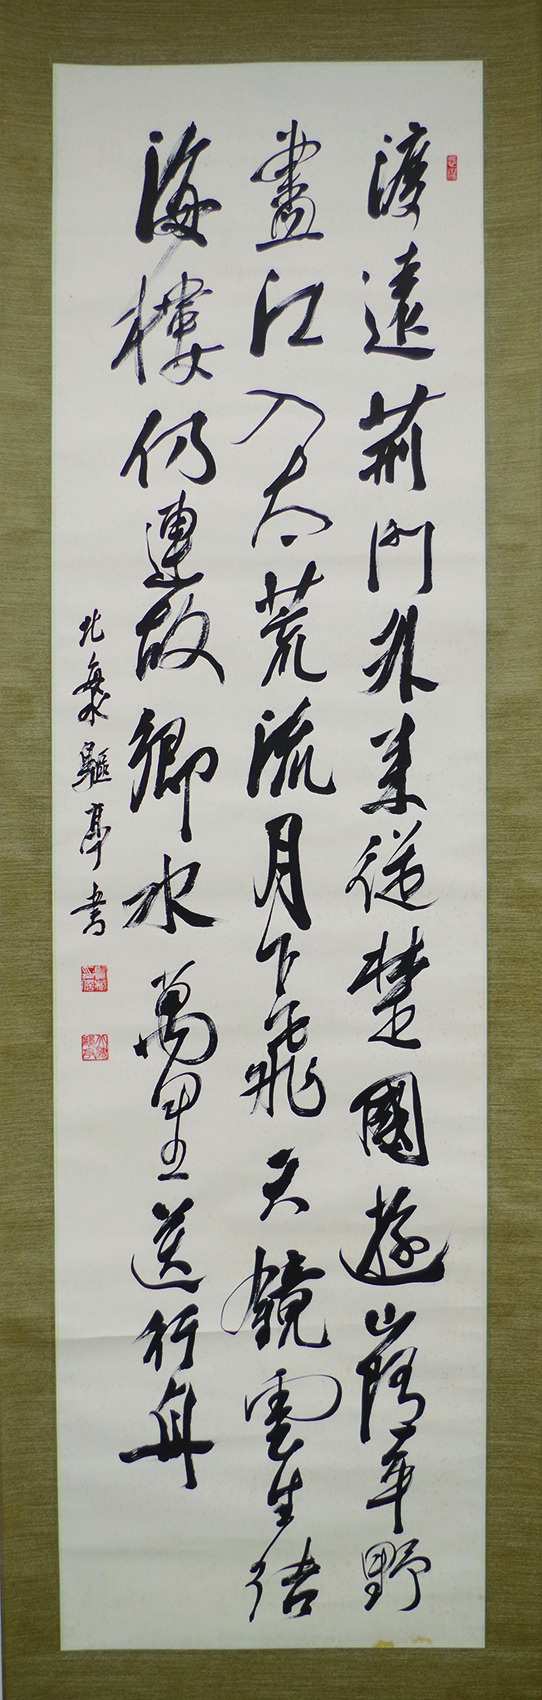 渡遠荊門外来從楚國遊山隨平野
盡江入大荒流月下飛天鏡雲生結
海樓仍連故鄉水萬里送行舟
北驅亭書